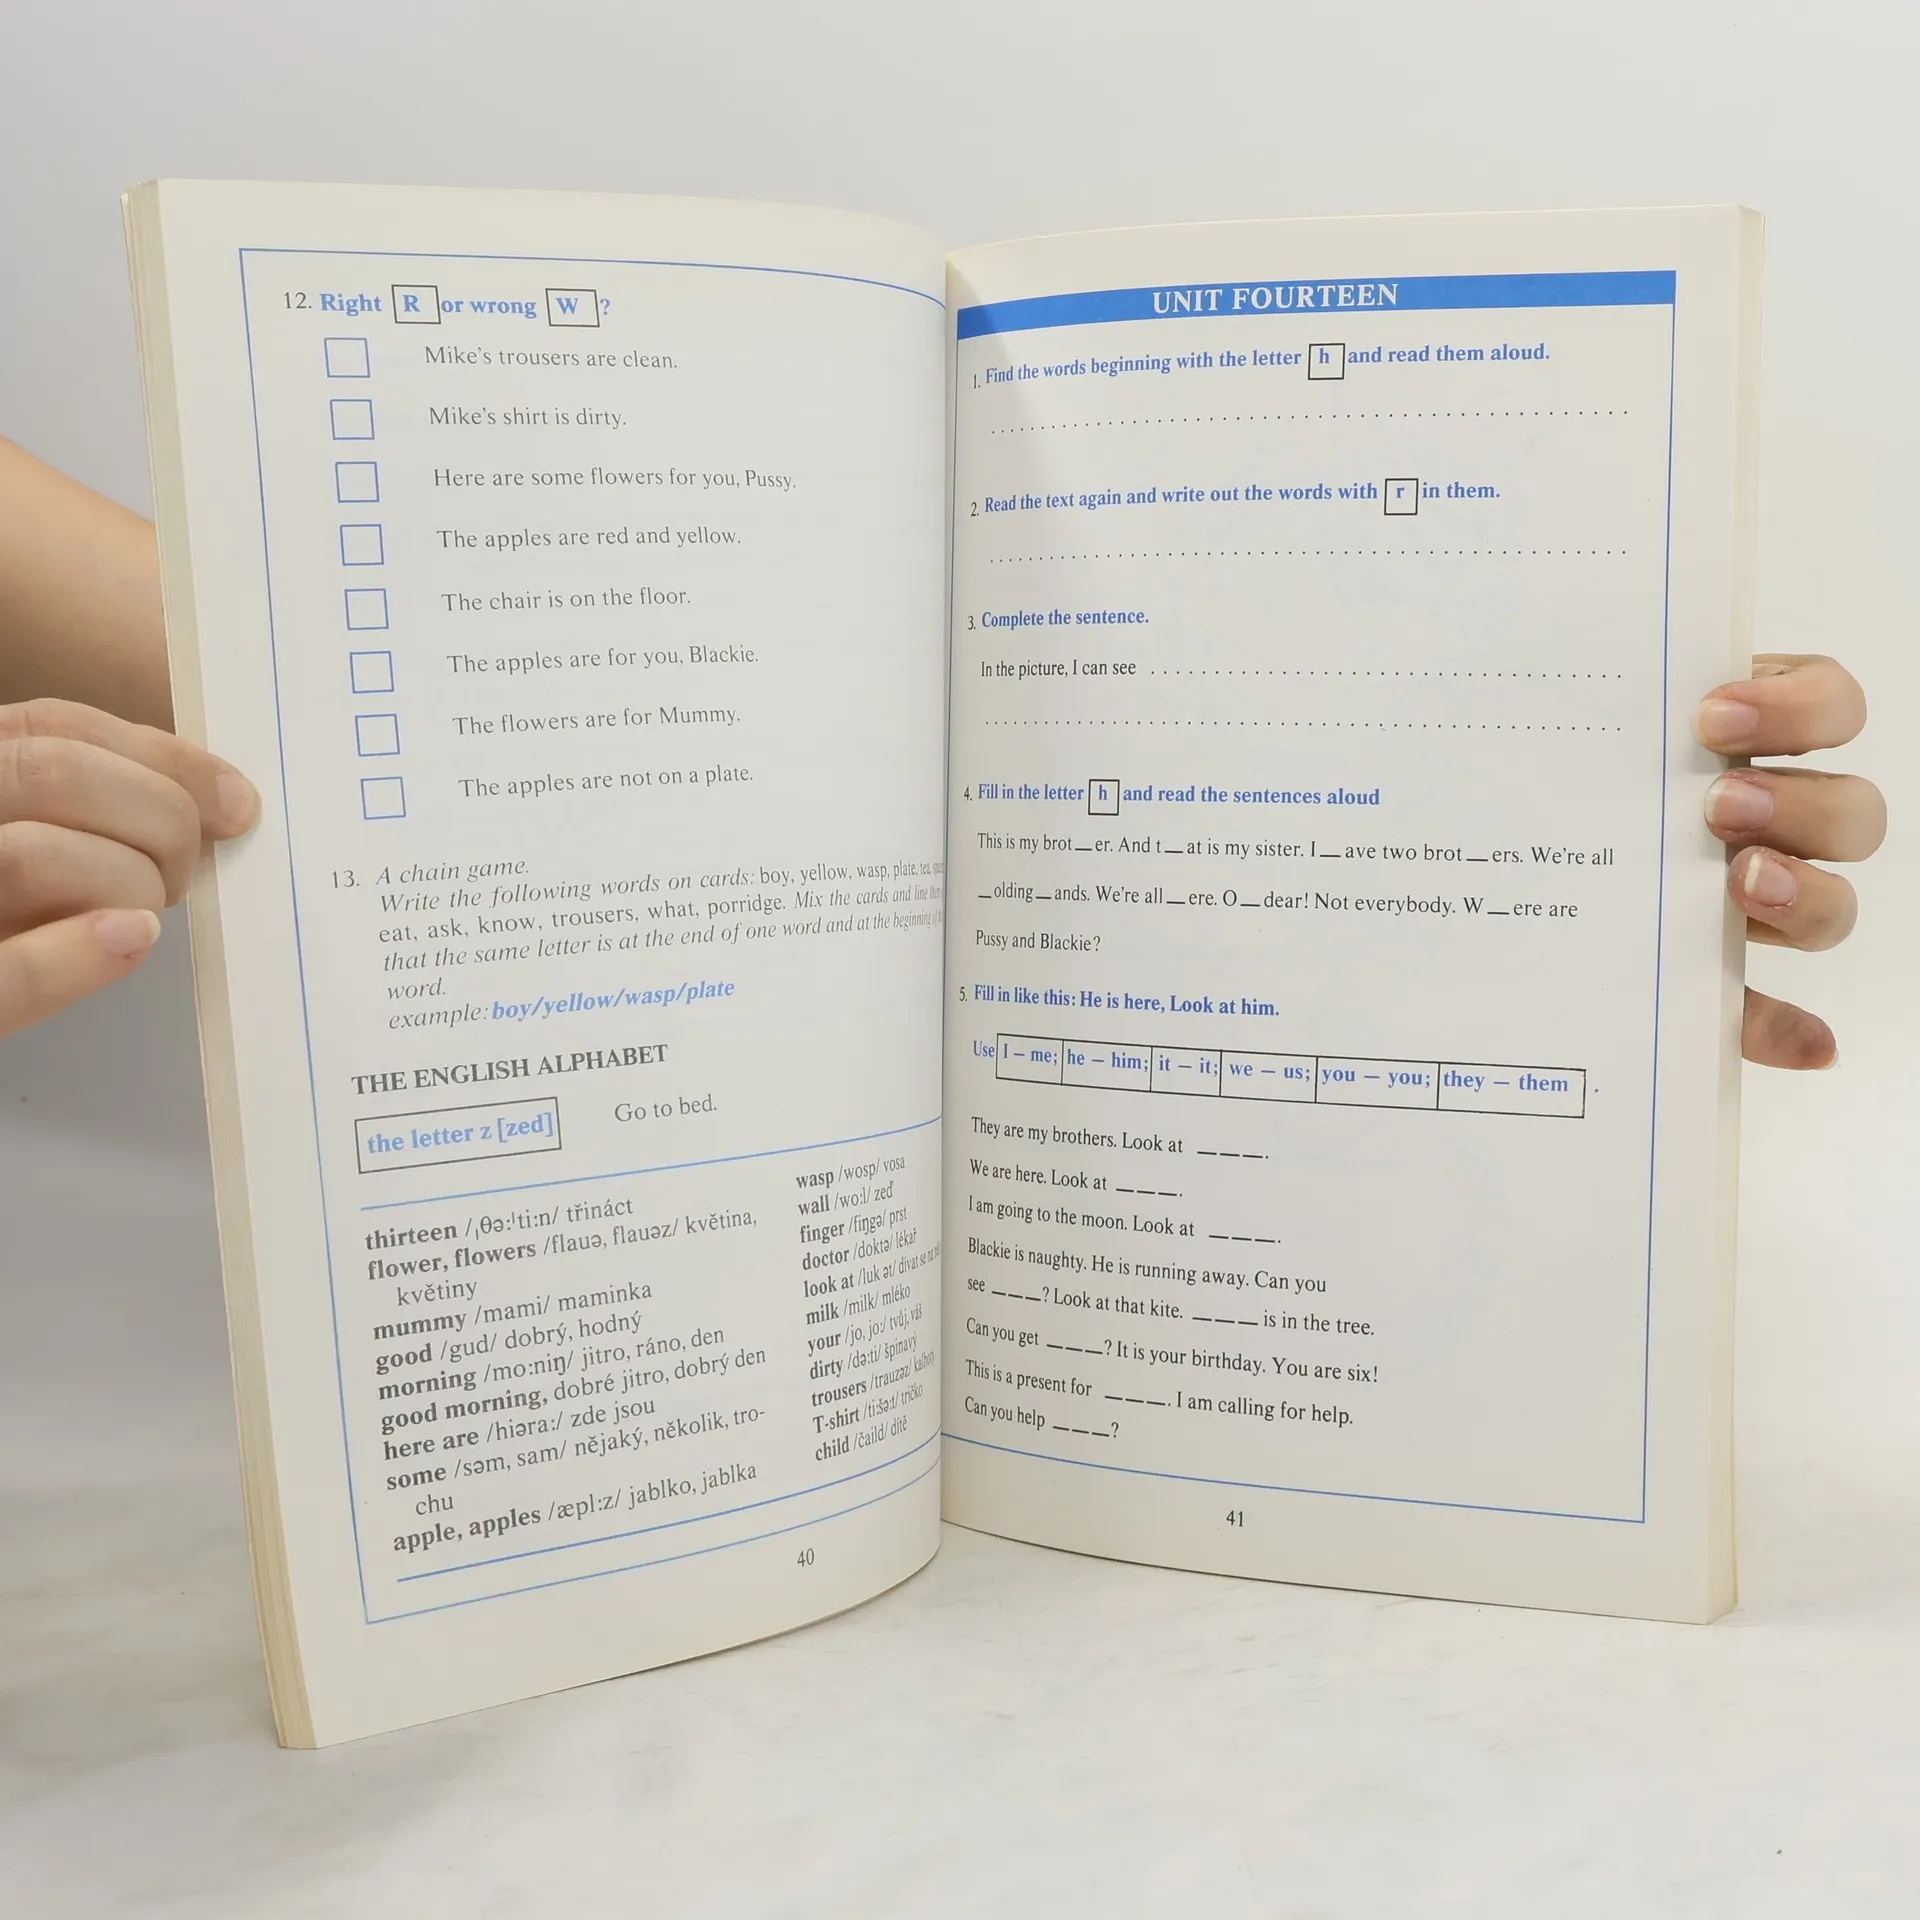 12. Right R or wrong W ?
Mike's trousers are clean.
Mike's shirt is dirty.
Here are some flowers for you, Pussy.
The apples are red and yellow.
The chair is on the floor.
The apples are for you, Blackie.
The flowers are for Mummy.
The apples are not on a plate.
13. A chain game.
Write the following words on cards: boy, yellow, wasp, plate, tea,
eat, ask, know, trousers, what, porridge. Mix the cards and line them
that the same letter is at the end of one word and at the beginning of
word.
example: boy/yellow/wasp/plate
THE ENGLISH ALPHABET
the letter z [zed] Go to bed.
thirteen /ˌθə:ˈti:n/ třináct
flower, flowers /flauə, flauəz/ květina,
květiny
mummy /mami/ maminka
good /gud/ dobrý, hodný
morning /mo:niŋ/ jitro, ráno, den
good morning, dobré jitro, dobrý den
here are /hiəra:/ zde jsou
some /səm, sam/ nějaký, několik, tro-
chu
apple, apples /æpl:z/ jablko, jablka
wasp /wosp/ vosa
wall /wo:l/ zeď
finger /fiŋgə/ prst
doctor /doktə/ lékař
look at /luk ət/ dívat se na
milk /milk/ mléko
your /jo, jo:/ tvůj, váš
dirty /də:ti/ špinavý
trousers /trauzəz/ kalhoty
T-shirt /ti:šə:t/ tričko
child /čaild/ dítě
40
UNIT FOURTEEN
1. Find the words beginning with the letter h and read them aloud.
2. Read the text again and write out the words with r in them.
3. Complete the sentence.
In the picture, I can see
4. Fill in the letter h and read the sentences aloud
This is my brot_er. And t_at is my sister. I_ave two brot_ers. We're all
_olding_ands. We're all_ere. O_dear! Not everybody. W_ere are
Pussy and Blackie?
5. Fill in like this: He is here, Look at him.
Use I – me; he – him; it – it; we – us; you – you; they – them .
They are my brothers. Look at ___.
We are here. Look at ___.
I am going to the moon. Look at ___.
Blackie is naughty. He is running away. Can you
see ___? Look at that kite. ___ is in the tree.
Can you get ___? It is your birthday. You are six!
This is a present for ___. I am calling for help.
Can you help ___?
41